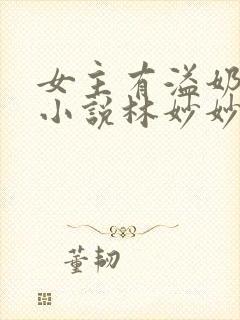 女主有溢奶
小说林妙妙
董韧